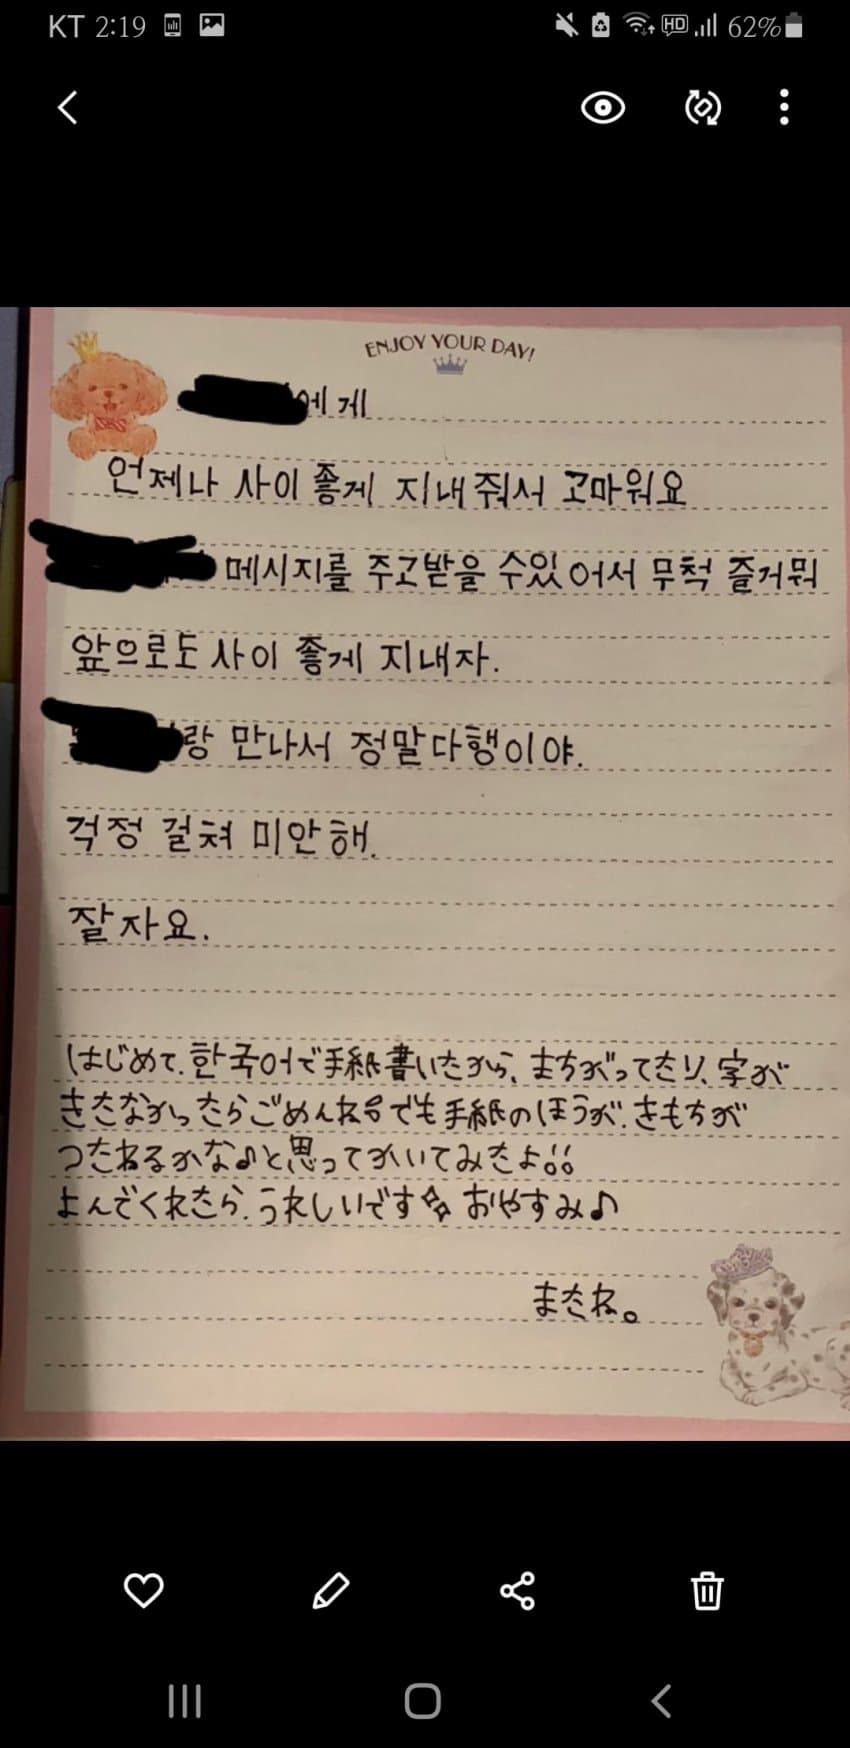 KT 2:19 HD 62%
ENJOY YOUR DAY!
에게
언제나 사이 좋게 지내줘서 고마워요
메시지를 주고받을 수있어서 무척 즐거워
앞으로도 사이 좋게 지내자.
랑 만나서 정말다행이야.
걱정 걸쳐 미안해.
잘자요.
はじめて、한국어で手紙書いたから、まちがってたり、字が
きたなかったらごめんねでも手紙のほうが、きもちが
つたわるかな♪と思ってかいてみたよ!!
よんでくれたら、うれしいです おやすみ♪
またね。